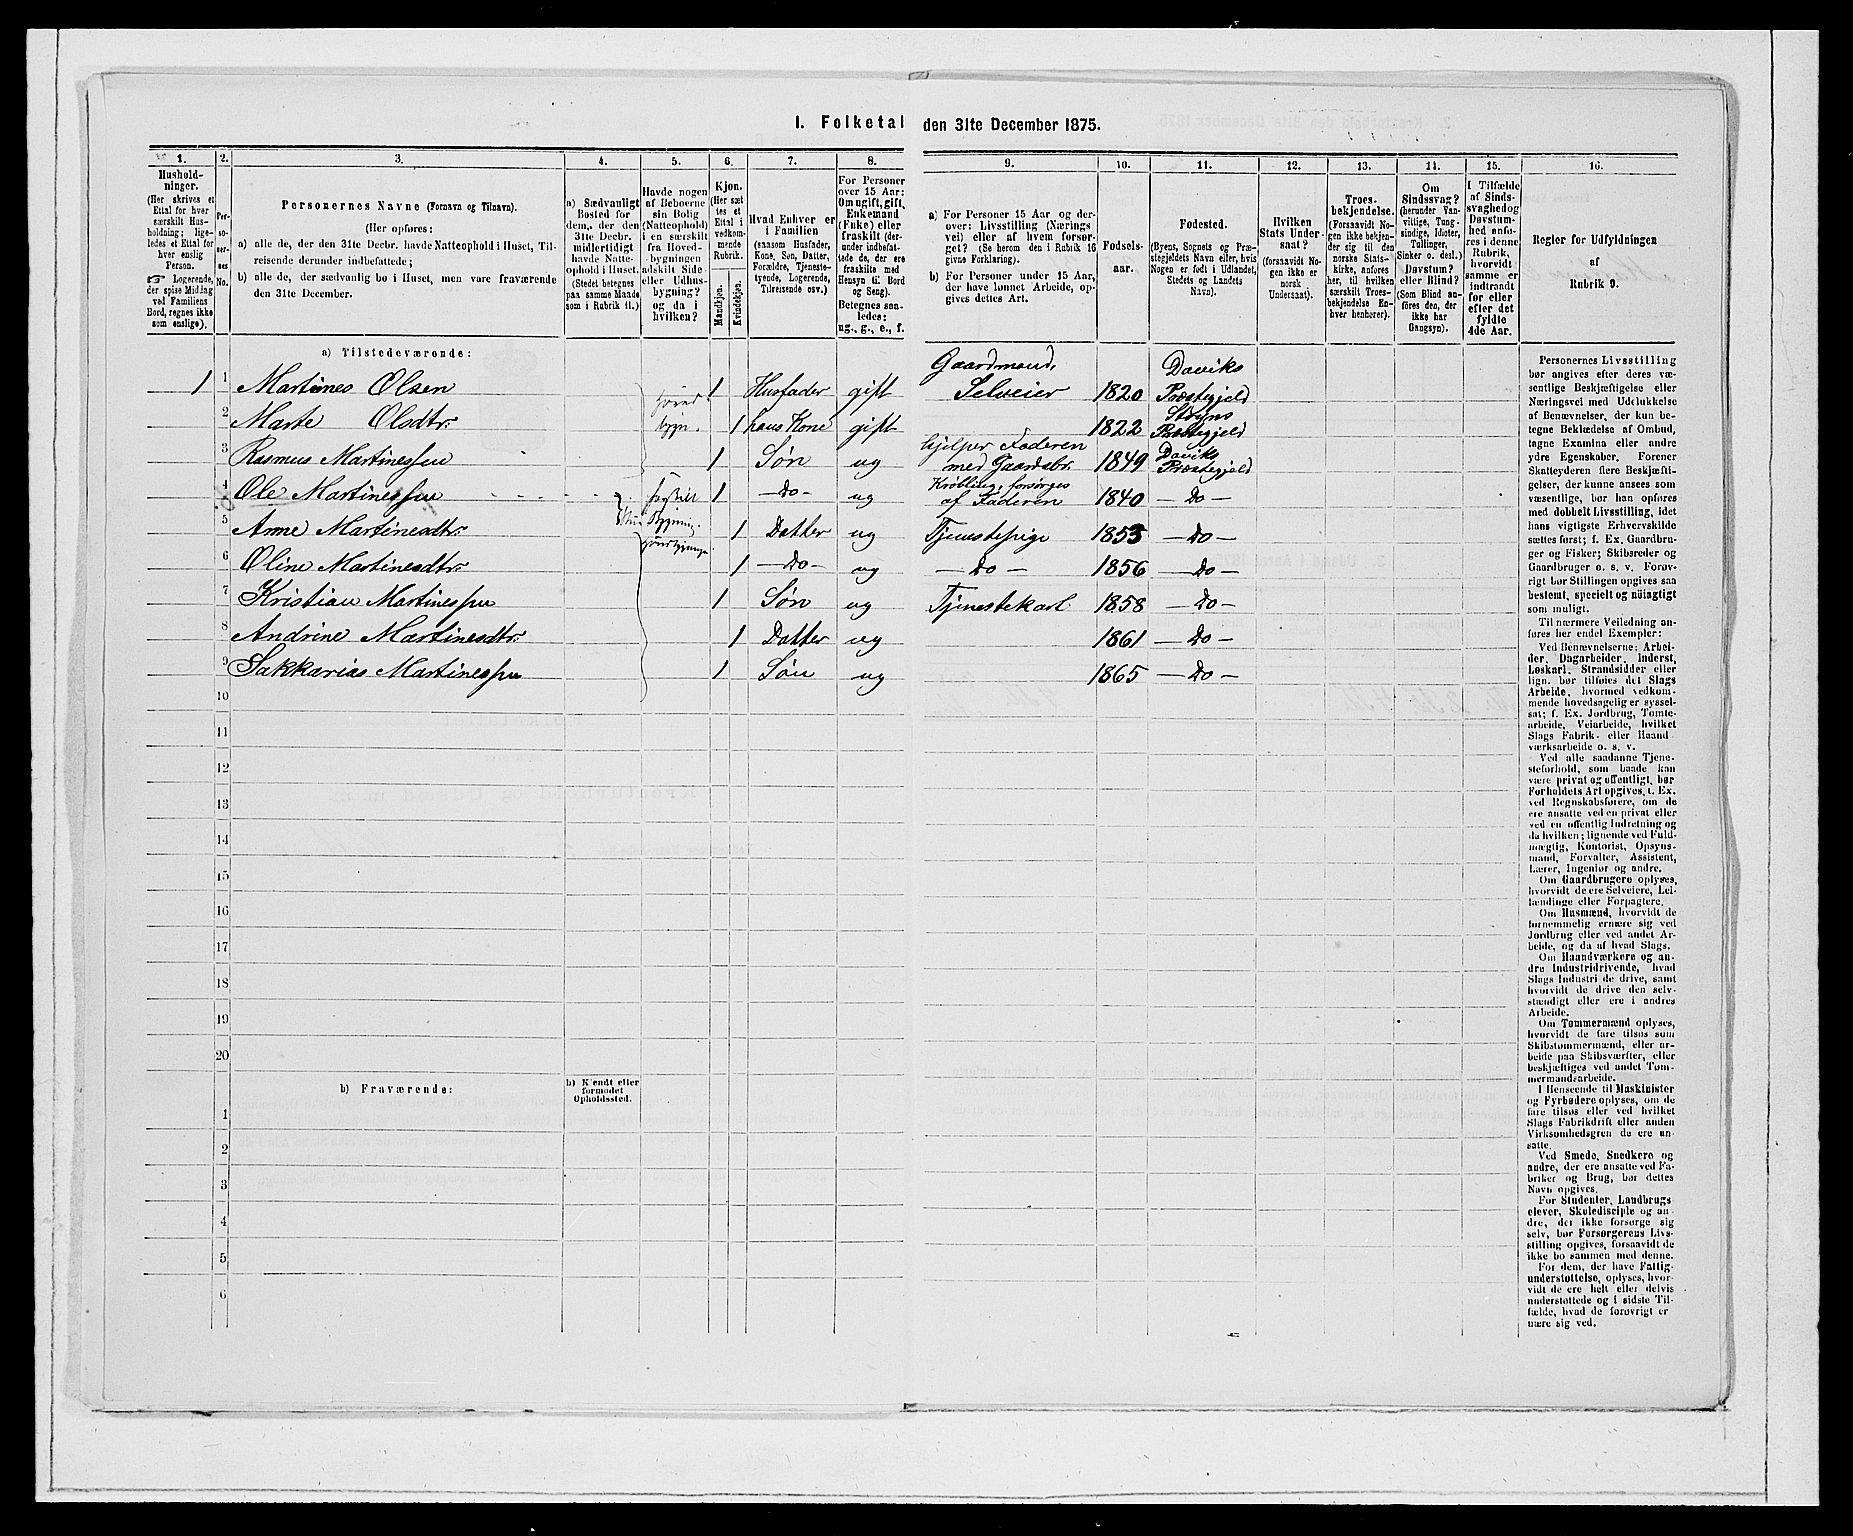 I. Folketal den 31te December 1875.
1. 2. 3. 4. 5. 6. 7. 8. 9. 10. 11. 12. 13. 14. 15. 16.
Hushold-
ninger.
(Her skrives et
Ettal for hver
særskilt Hus-
holdning; lige-
ledes et Ettal for
hver enslig
Person.
☞ Logerende,
der spise Middag
ved Familiens
Bord, regnes ikke
som enslige).
Per-
so-
ner-
nes
No.
Personernes Navne (Fornavn og Tilnavn).
(Her opføres:
a) alle de, der den 31te Decbr. havde Natteophold i Huset, Til-
reisende derunder indbefattede;
b) alle de, der sædvanlig bo i Huset, men vare fraværende
den 31te December.
a) Sædvanligt
Bosted for
dem, der den
31te Decbr.
midlertidigt
havde Natte-
ophold i Huset.
(Stedet betegnes
paa samme Maade
som i Rubrik 11.)
Havde nogen
af Beboerne
sin Bolig
(Natteophold)
i en særskilt
fra Hoved-
bygningen
adskilt Side-
eller Udhus-
bygning?
og da i
hvilken?
Kjøn.
(Her sæt-
tes et
Ettal i
vedkom-
mende
Rubrik.
Mandkjøn.
Kvindekjøn.
Hvad Enhver er
i Familien
(saasom Husfader,
Kone, Søn, Datter,
Forældre, Tjeneste-
tyende, Logerende,
Tilreisende osv.)
For Personer
over 15 Aar:
Om ugift, gift,
Enkemand
(Enke) eller
fraskilt (der-
under indbefat-
tede de, der ere
fraskilte med
Hensyn til Bord
og Seng).
Betegnes saa-
ledes:
ug., g., e., f.
a) For Personer 15 Aar og der-
over: Livsstilling (Nærings-
vei) eller af hvem forsør-
get? (Se herom den i Rubrik 16
givne Forklaring).
b) For Personer under 15 Aar,
der have lønnet Arbeide, op-
gives dettes Art.
Fødsels-
aar.
Fødested.
(Byens, Sognets og Præ-
stegjeldets Navn eller, hvis
Nogen er født i Udlandet,
Stedets og Landets
Navn).
Hvilken
Stats Under-
saat?
(forsaavidt No-
gen ikke er
norsk
Undersaat).
Troes-
bekjendelse.
(Forsaavidt No-
gen ikke bekjen-
der sig til den
norske Stats-
kirke, anføres
her, til hvilken
særskilt Troes-
bekjendelse En-
hver henhører).
Om
Sindssvag?
(herunder Van-
vittige, Tung-
sindige, Idioter,
Tullinger,
Sinker o. desl.)
Døvstum?
eller Blind?
(Som Blind an-
føres den, der
ikke har
Gangsyn).
I Tilfælde
af Sinds-
svaghed og
Døvstum-
hed anfø-
res i denne
Rubrik,
hvorvidt
samme er
indtraadt
før eller
efter det
fyldte
4de Aar.
Regler for Udfyldningen
af
Rubrik 9.
a) Tilstedeværende:
1 1 Martines Olsen 1 Husfader gift Gaardmand, Selveier 1820 Daviks Præstegjeld
2 Marte Olsdtr. 1 hans Kone gift 1822 Stryns Præstegjeld
3 Rasmus Martinessen 1 Søn ug hjelper Faderen med Gaardsbr. 1849 Daviks Præstegjeld
4 Ole Martinessen 1 —Do— ug Krøbling, forsørges af Faderen 1840 —Do—
5 Anne Martinesdtr. 1 Datter ug Tjenestepige 1853 —Do—
6 Oline Martinesdtr. 1 —Do— ug —Do— 1856 —Do—
7 Kristian Martinessen 1 Søn ug Tjenestekarl 1858 —Do—
8 Andrine Martinesdtr. 1 Datter ug 1861 —Do—
9 Sakkarias Martinessen 1 Søn ug 1865 —Do—
10
11
12
13
14
15
16
17
18
19
20
b) Fraværende:
b) Kjendt eller
formodet
Opholdssted.
1
2
3
4
5
6
Personernes Livsstilling
bør angives efter deres væ-
sentlige Beskjæftigelse eller
Næringsvei med Udelukkelse
af Benævnelser, der kun be-
tegne Beklædelse af Ombud,
tagne Examina eller andre
ydre Egenskaber. Forener
Skatteyderen flere Beskjæfti-
gelser, der kunne ansees som
væsentlige, bør han opføres
med dobbelt Livsstilling, idet
hans vigtigste Erhvervskilde
sættes først; f. Ex. Gaardbru-
ger og Fisker; Skibsreder og
Gaardbruger o. s. v. Forøv-
rigt bør Stillingen opgives saa
bestemt, specielt og nøiagtigt
som muligt.
Til nærmere Veiledning an-
føres her endel Exempler:
Ved Benævnelserne: Arbei-
der, Dagarbeider, Inderst,
Løskarl, Strandsidder eller
lign. bør tilføies det Slags
Arbeide, hvormed vedkom-
mende hovedsagelig er syssel-
sat; f. Ex. Jordbrug, Tomte-
arbeide, Veiarbeide, hvilket
Slags Fabrik- eller Haand-
værksarbeide o. s. v.
Ved alle saadanne Tjene-
steforhold, som baade kan
være privat og offentligt, bør
Forholdets Art opgives, t. Ex.
ved Regnskabsførere, om de
ere ansatte ved en privat eller
ved en offentlig Indretning og
da hvilken; lignende ved Fuld-
mægtig, Kontorist, Opsyns-
mand, Forvalter, Assistent,
Lærer, Ingeniør og andre.
Om Gaardbrugere oplyses,
hvorvidt de ere Selveiere, Lei-
lændinge eller Forpagtere.
Om Husmænd, hvorvidt de
fornemmelig ernære sig ved
Jordbrug eller ved andet Ar-
beide, og da af hvad Slags.
Om Haandværkere og an-
dre Industridrivende, hvad
Slags Industri de drive, samt
hvorvidt de drive den selv-
stændigt eller ere i andres
Arbeide.
Om Tømmermænd oplyses,
hvorvidt de fare tilsøs som
Skibstømmermænd, eller ar-
beide paa Skibsværfter, eller
beskjæftiges ved andet Tøm-
mermandsarbeide.
I Henseende til Maskinister
og Fyrbødere oplyses, om de
fare tilsøs eller ved hvilket
Slags Fabrikdrift eller anden
Virksomhedsgren de ere an-
satte.
Ved Smede, Snedkere og
andre, der ere ansatte ved Fa-
briker og Brug, bør dettes
Navn opgives.
For Studenter, Landbrugs-
elever, Skoledisciple og an-
dre, der ikke forsørge sig
selv, bør Forsørgerens Livs-
stilling opgives, forsaavidt de
ikke bo sammen med denne.
For dem, der have Fattig-
understøttelse, oplyses, hvor-
vidt de ere helt eller delvis
understøttede og i sidste Til-
fælde, hvad de forøvrigt er-
nære sig ved.